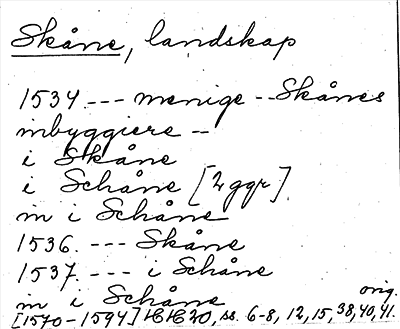 Skåne, landskap
1534 --- menige -- Skånes
inbyggiere --
i Skåne
i Schåne [2 ggr].
in i Schåne
1536. --- Skåne
1537. --- i Schåne
in i Schåne orig.
[1570-1594] HH 20, ss. 6-8, 12, 15, 38, 40, 41.